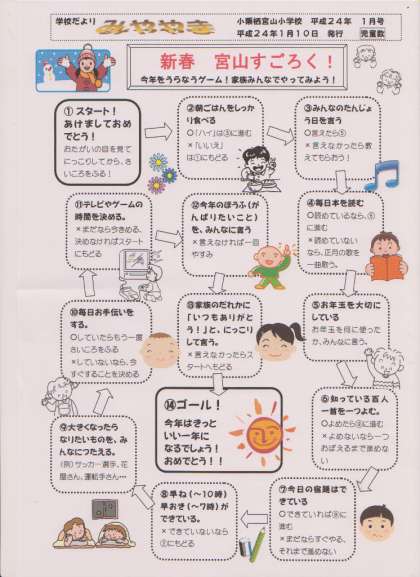 学校だより
みややま
小栗栖宮山小学校 平成24年 1月号
平成24年1月10日 発行 児童数
新春 宮山すごろく!
今年をうらなうゲーム!家族みんなでやってみよう!
① スタート!
あけましておめ
でとう!
おたがいの目を見て
にっこりしてから、さ
いころをふる!
②朝ごはんをしっか
り食べる
○「ハイ」は③に進む
×「いいえ」
は①にもどる
③みんなのたんじょ
う日を言う
○言えたら⑤
×言えなかったら教
えてもらおう!
④毎日本を読む
○読めているなら、⑤
に進む
×読めていない
なら、正月の歌を
一曲歌う。
⑤お年玉を大切に
している
お年玉を何に使った
か、みんなに言う。
⑥知っている百人
一首をつよむ。
○よめたら⑧に進む
×よめないなら一つ
おぼえるまで進めな
い
⑦今日の宿題はで
きている
○できていれば⑧に
進む
×まだならすぐやる、
それまで進めない
⑧早ね(~10時)
早おき(~7時)が
できている。
×できていないなら
②にもどる
⑨大きくなったら
なりたいものを、み
んなにつたえる。
(例)サッカー選手、花
屋さん、運転手さん…
⑩毎日お手伝いを
する。
○していたらもう一度
さいころをふる
×していないなら、今
すぐすることを決める
⑪テレビやゲームの
時間を決める。
×まだなら今きめる、
決めなければスタート
にもどる
⑫今年のほうふ(が
んばりたいこと)
を、みんなに言う
×言えなければ一回
やすみ
⑬家族のだれかに
「いつもありがと
う!」と、にっこり
して言う。
×言えなかったらス
タートへもどる
⑭ゴール!
今年はきっと
いい一年に
なるでしょう!
おめでとう!!